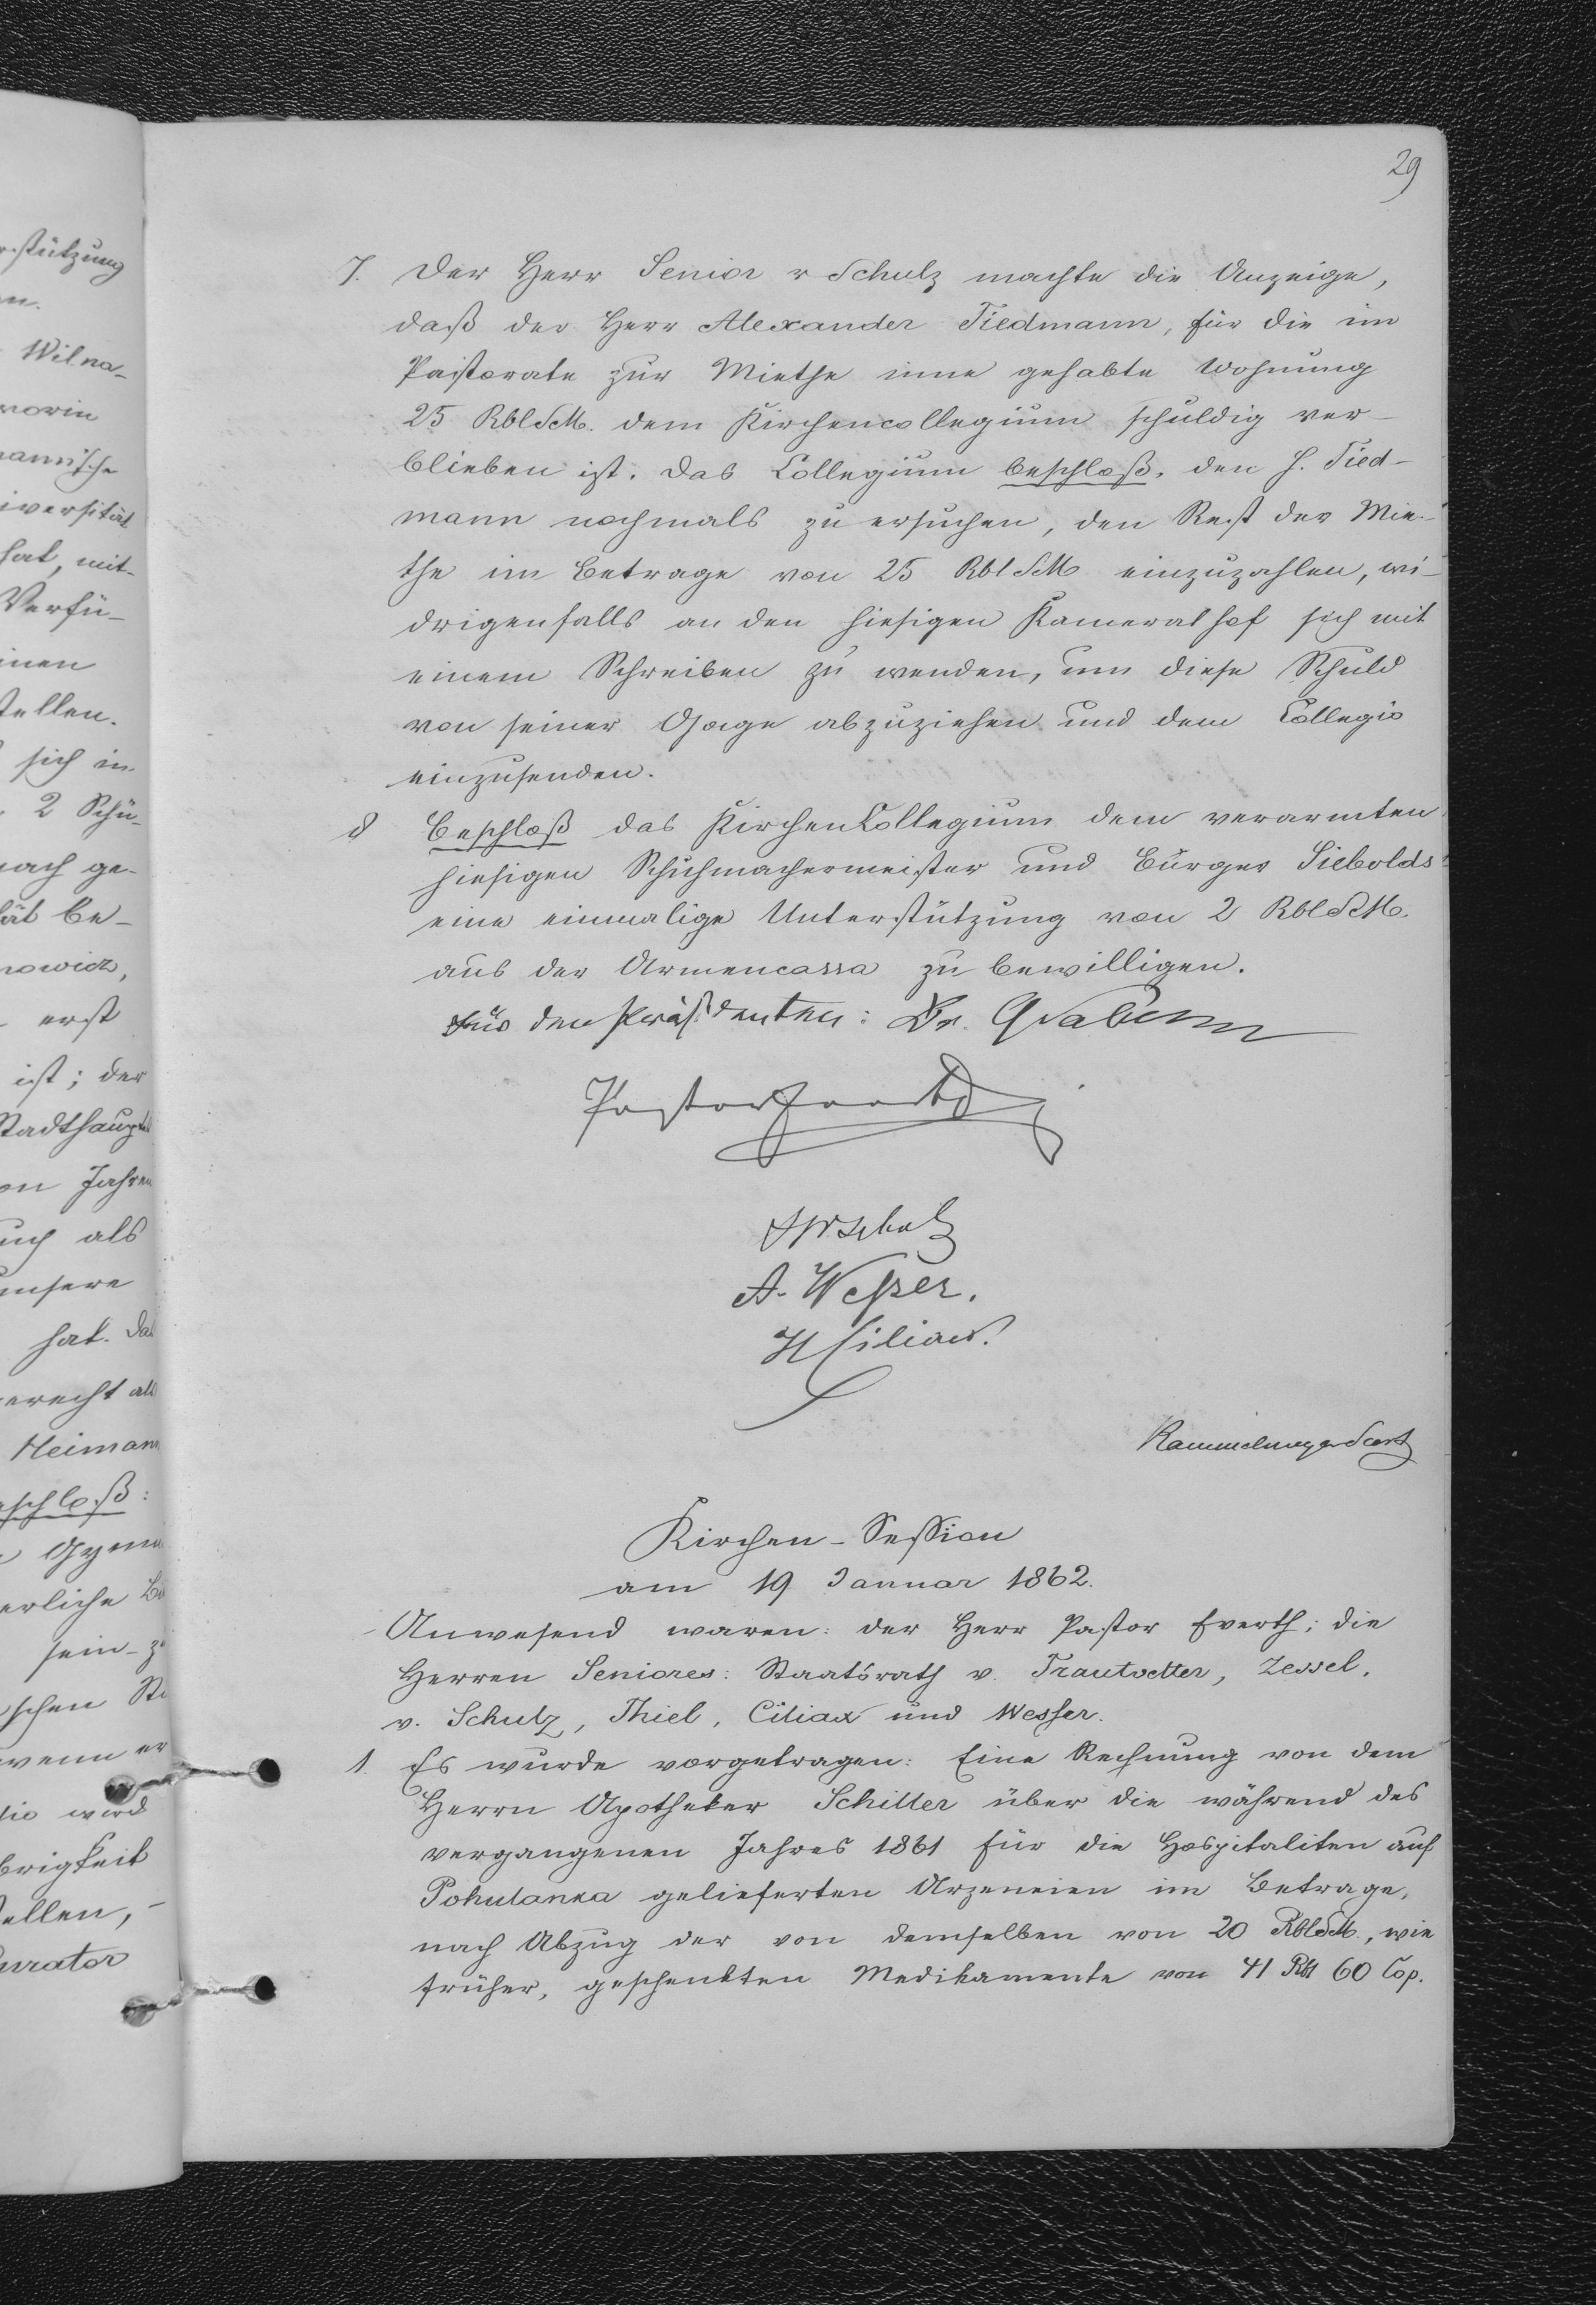 29
7. Der Herr Senior v Schulz machte die Anzeige,
daß der Herr Alexander Tiedmann, für die im
Pastorate zur Miethe inne gehabte Wohnung
25 Rbl SM. dem Kirchencollegium schuldig ver-
blieben ist. Das Collegium beschloß, den H. Tied-
mann nochmals zu ersuchen, den Rest der Mie-
the im Betrage von 25 Rbl SM einzuzahlen, wi-
drigenfalls an den hiesigen Kameralhof sich mit
einem Schreiben zu wenden, um diese Schuld
von seiner Gage abzuziehen und dem Collegio
einzusenden.
8 Beschloß das Kirchen Collegium dem verarmten
hiesigen Schuhmachermeister und Bürger Siebolds
eine einmalige Unterstützung von 2 Rbl SM.
aus der Armencassa zu bewilligen.
Für den Präsidenten: Dr.
Pastor Everth
Schulz
A. Weßer.
H Ciliax.
Kirchen-Session
am 19 Januar 1862.
Anwesend waren: der Herr Pastor Everth; die
Herren Seniores: Staatsrath v. Trautvetter, Zessel,
v. Schulz, Thiel, Ciliax und Wesser.
1. Es wurde vorgetragen: Eine Rechnung von dem
Herrn Apotheker Schiller über die während des
vergangenen Jahres 1861 für die Hospitaliten auf
Pohulanka gelieferten Arzeneien im Betrage,
nach Abzug der von demselben von 20 Rbl SM., wie
früher, geschenkten Medikamente von 41 Rbl 60 Cop.